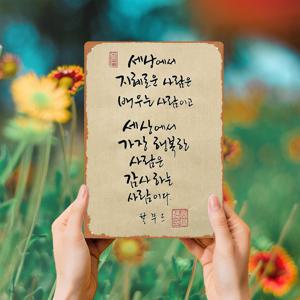 세상에서
지혜로운 사람은
배우는 사람이고
세상에서
가장 행복한
사람은
감사하는
사람이다.
탈무드